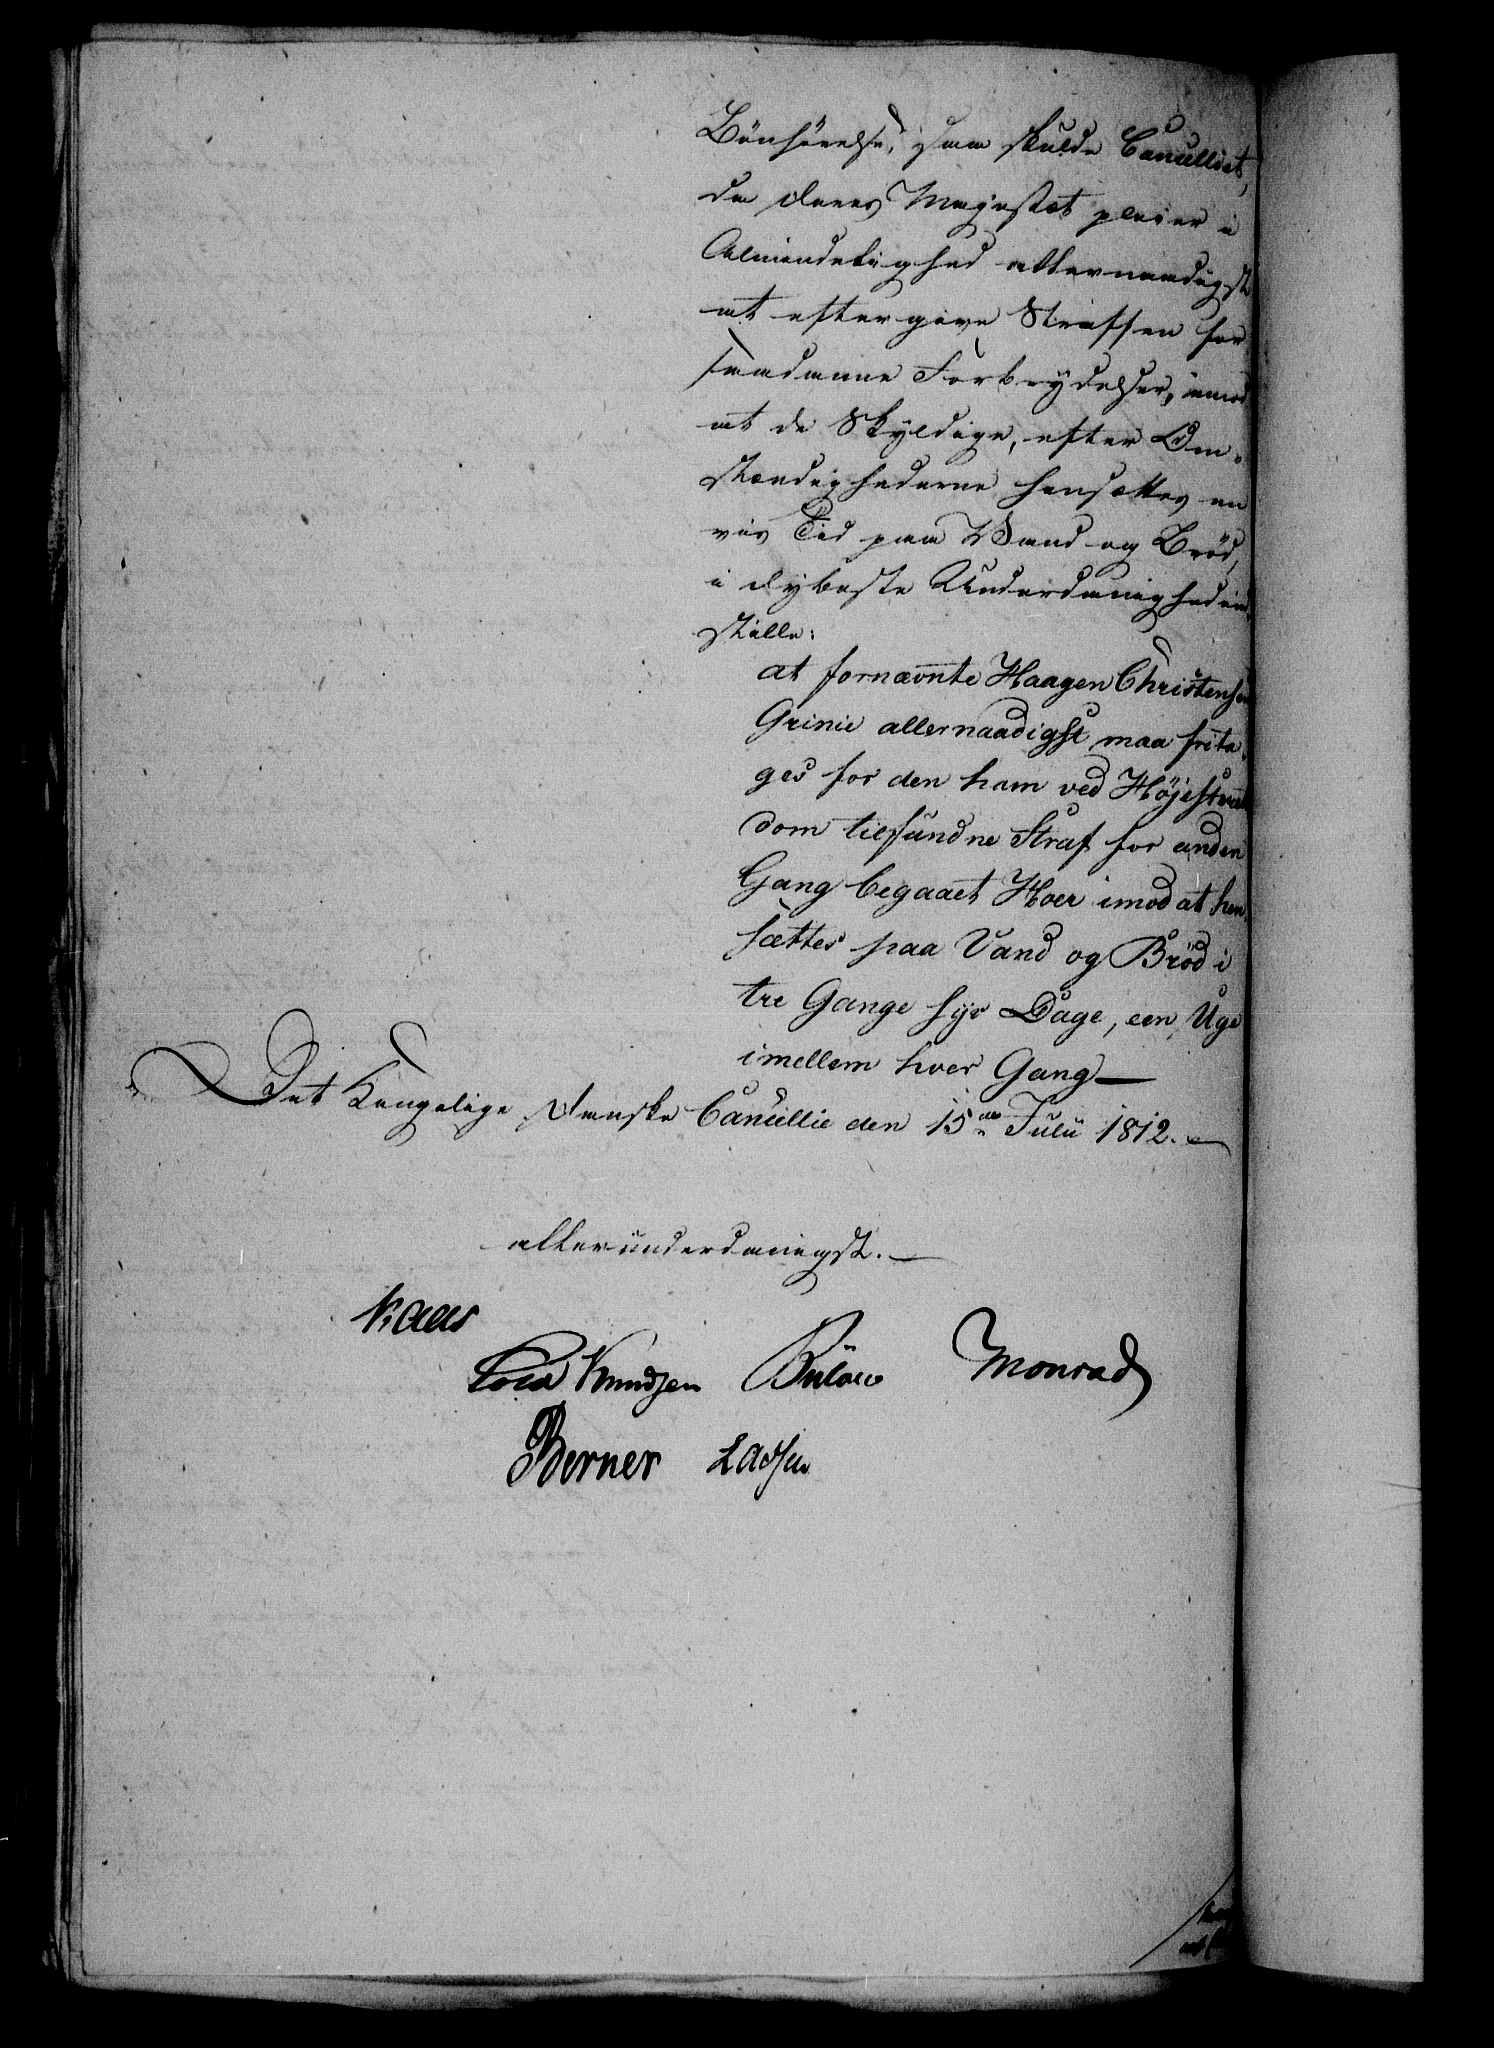 Bønhørelse, saa skulde Cancelliet,
da Deres Majestæt pleier i
Almindelighed allernaadigst
at eftergive Straffen for
saadanne Forbrydelser, imod
at de Skyldige, efter Om-
stændighederne hensættes en
vis Tid paa Vand og Brød,
i dybeste Underdanighed ind-
stille:
at fornævnte Haagen Christensen
Grinie allernaadigst maa frita-
ges for den ham ved Højesterets
dom tilfundne Straf for anden
Gang begaaet Hoer imod at hen-
sættes paa Vand og Brød i
tre Gange fyr Dage, een Uge
imellem hver Gang —
Det Kongelige Danske Cancellie den 15de Julii 1812. —
allerunderdanigst. —
Kaas
Cold Knudsen Bülow Monrad
Berner Lassen